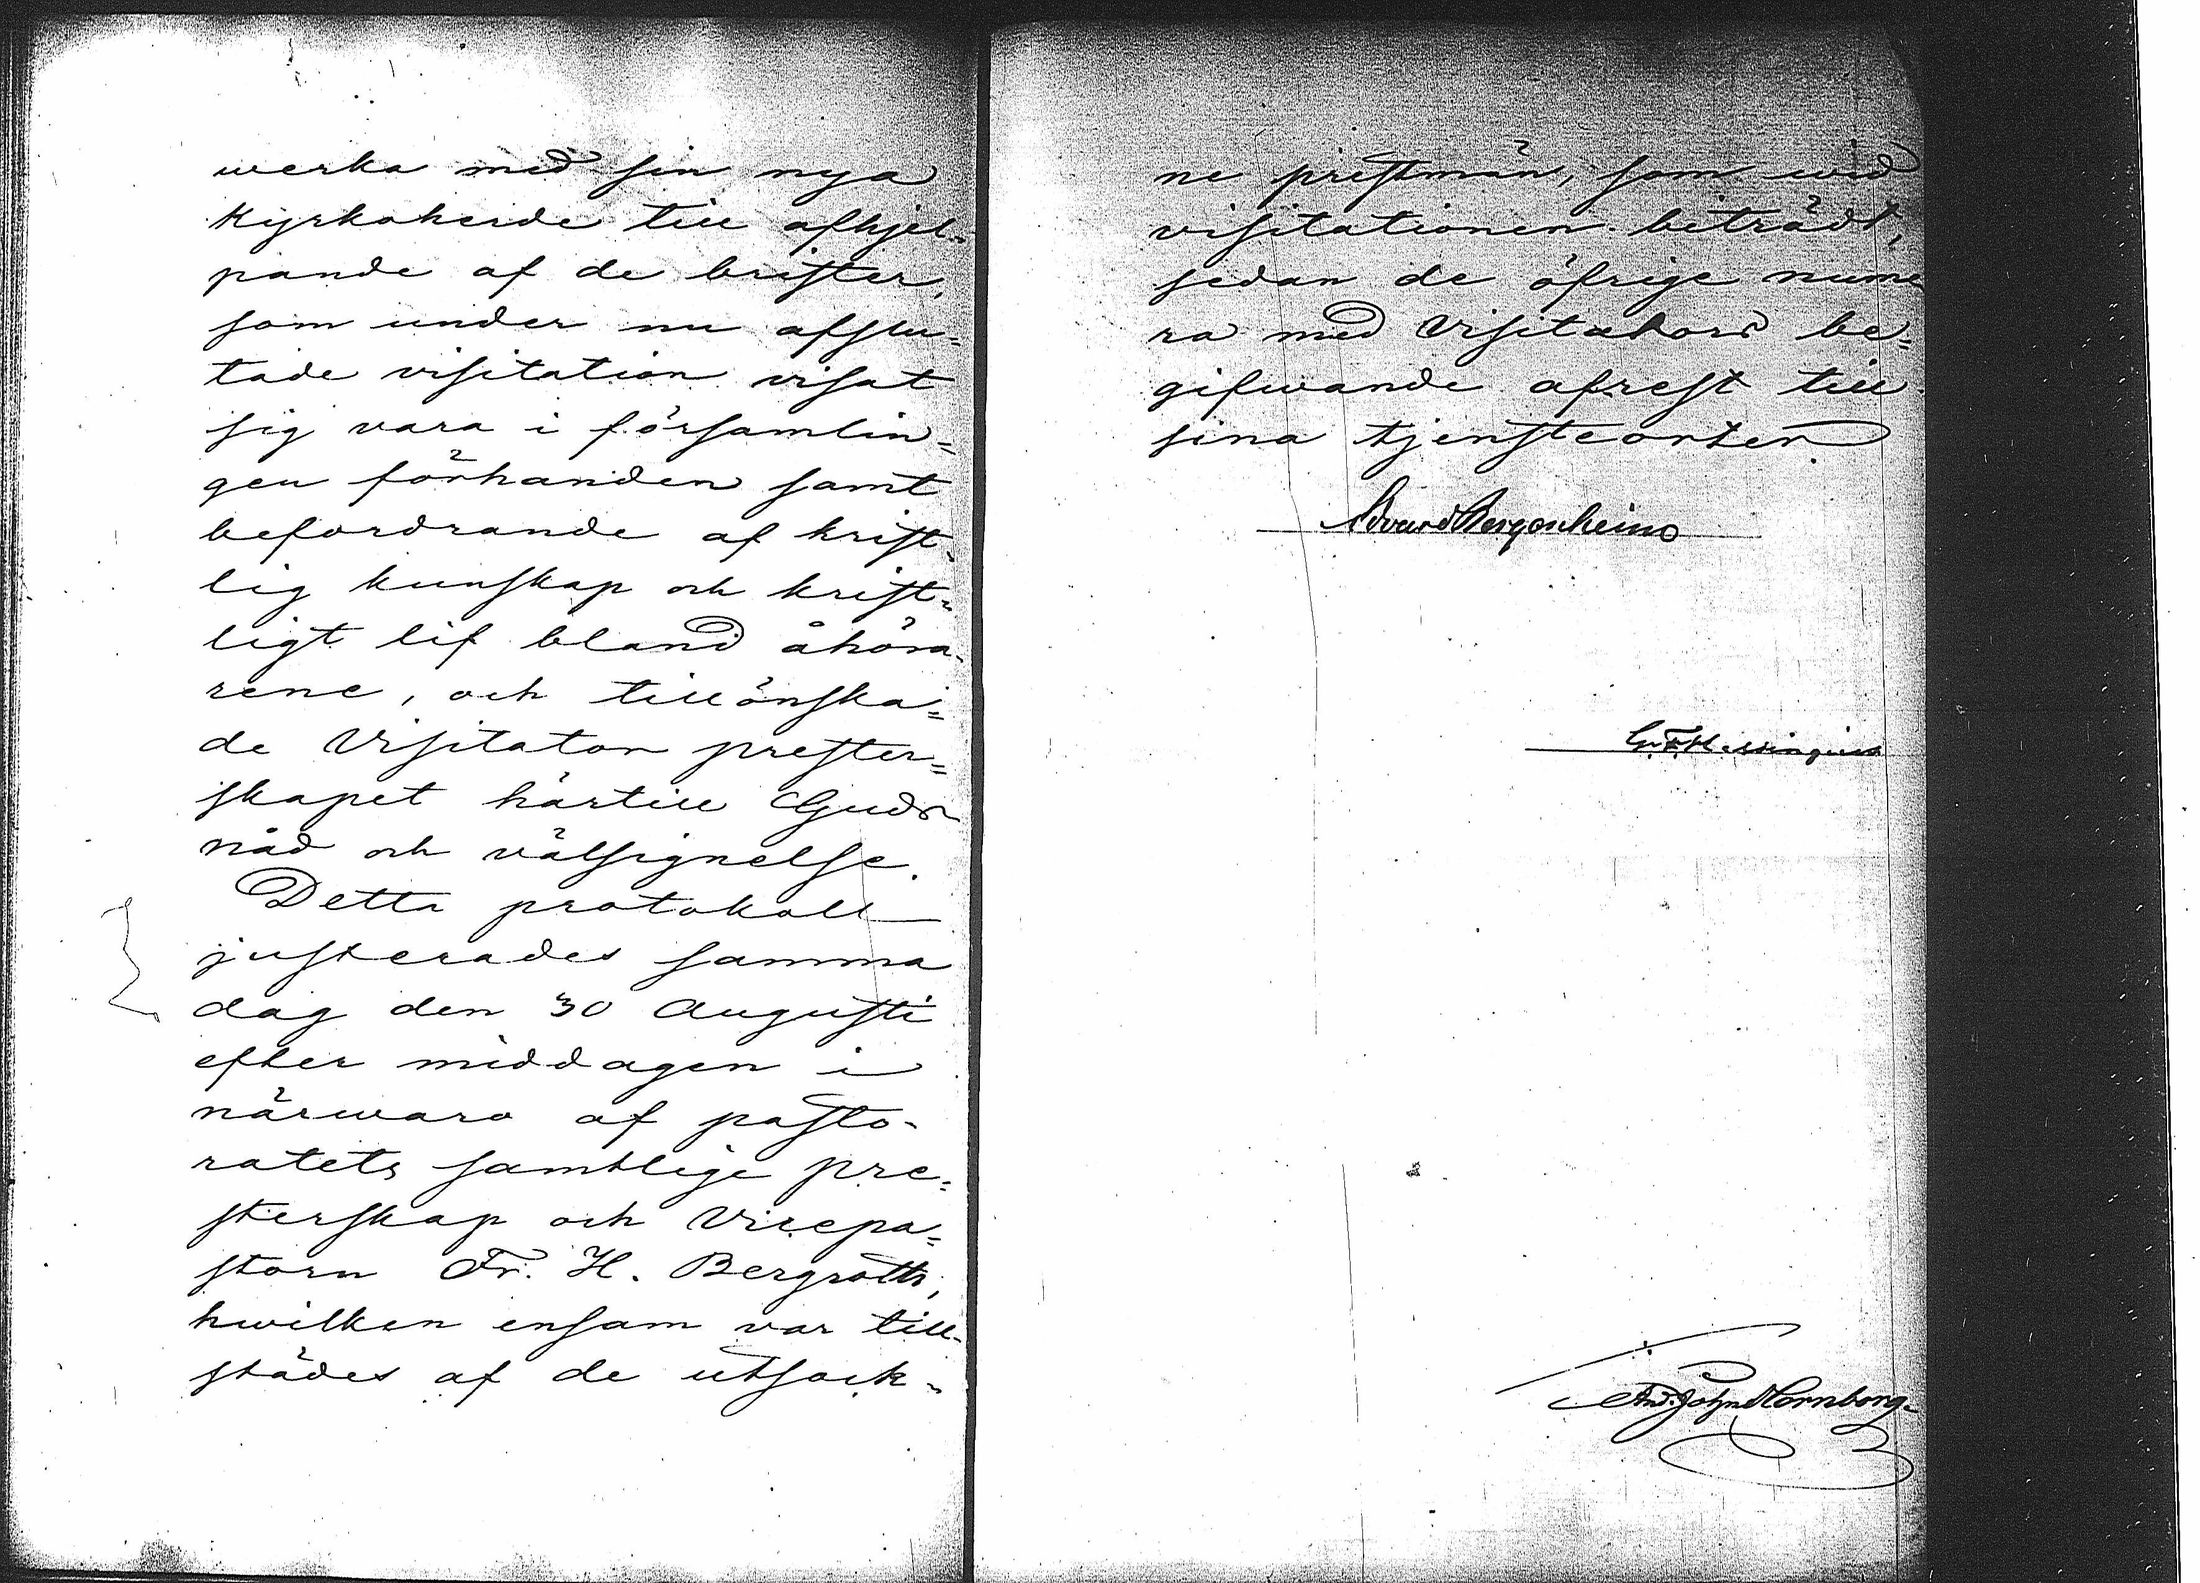 werka med sin nya
Kyrkoherde till afhjel-
pande af de brister,
som under nu afslu=
tade visitation visat
sig vara i församlin=
gen förhanden samt
befordrande af krist=
lig kunskap och krist=
ligt lif bland åhöra-
rene, och tillönska=
de Visitator prester=
skapet härtill Guds
nåd och välsignelse.
Detta protokoll
justerades samma
dag den 30 Augusti
efter middagen i
närwaro af pasto-
ratets samtlige pre=
sterskap och Vicepa=
storn Fr. H. Bergroth,
hwilken ensam var till-
städes af de utsock-
ne prestmän, som wid
visitationen biträdt,
sedan de öfrige nume
ra med Visitators be=
gifwande afrest till
sina tjensteorter.
Edvard Bergenheim
And. John Hornborg.